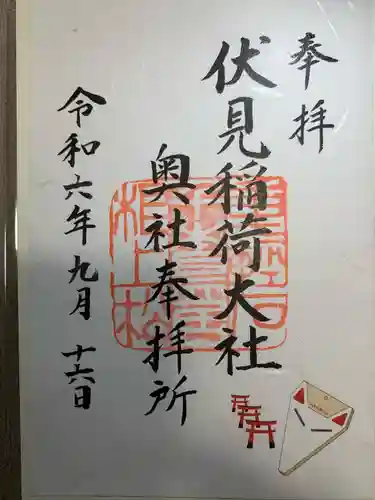 奉拝
伏見稲荷大社
奥社奉拝所
令和六年九月 十六日